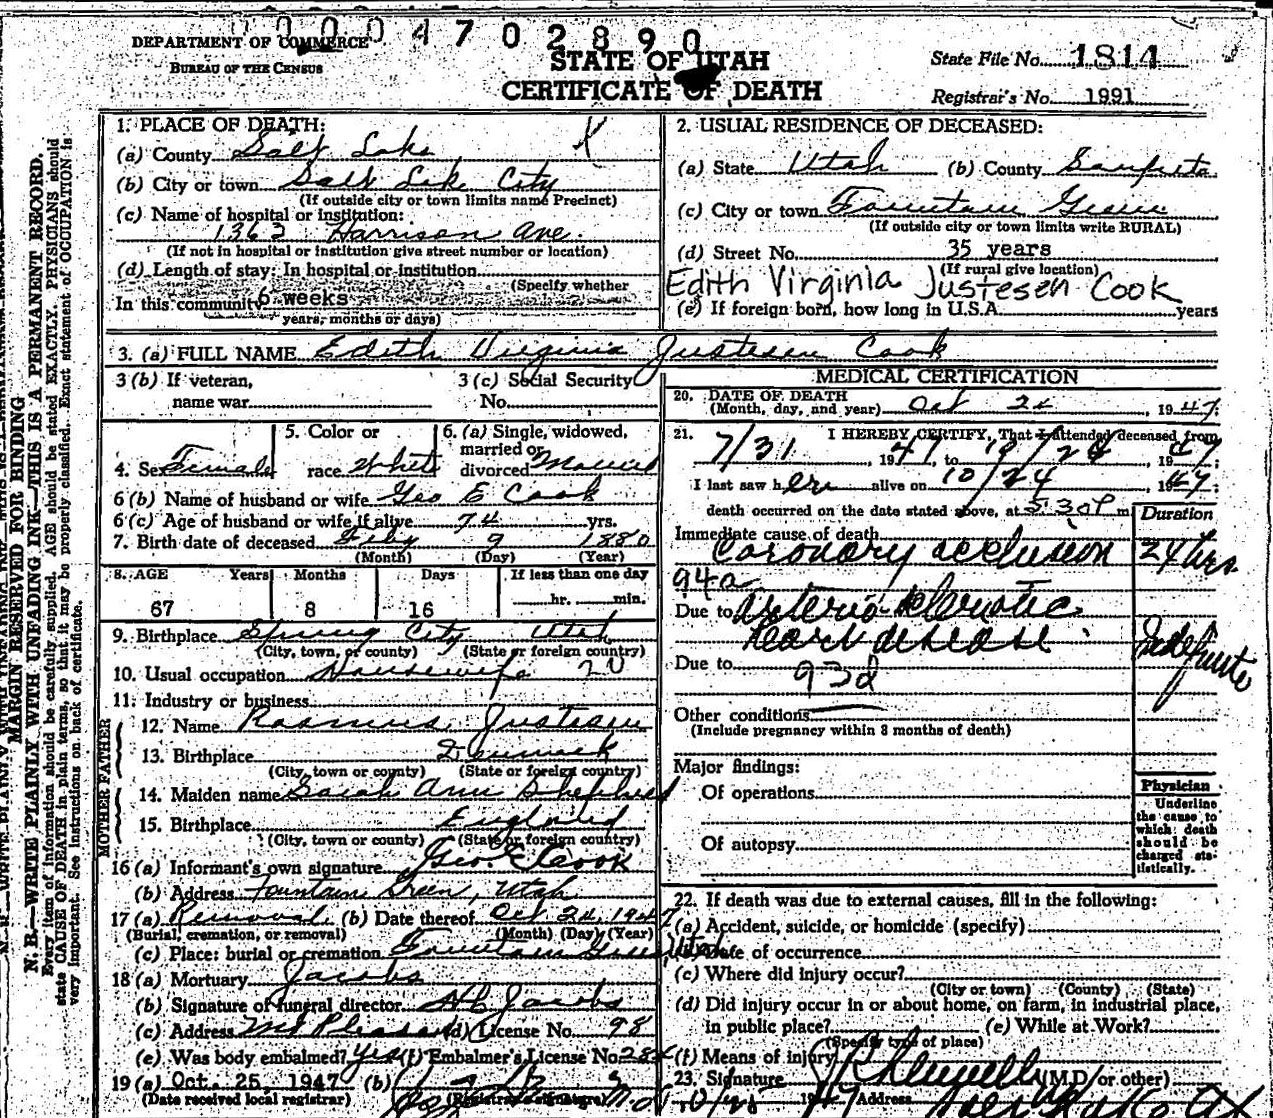 0004702890
DEPARTMENT OF COMMERCE
BUREAU OF THE CENSUS
STATE OF UTAH
CERTIFICATE OF DEATH
State File No. 1814
Registrar's No. 1991
MARGIN RESERVED FOR BINDING
N. B.—WRITE PLAINLY WITH UNFADING INK—THIS IS A PERMANENT RECORD.
Every item of information should be carefully supplied. AGE should be stated EXACTLY. PHYSICIANS should
state CAUSE OF DEATH in plain terms, so that it may be properly classified. Exact statement of OCCUPATION is
very important. See instructions on back of certificate.
1. PLACE OF DEATH:
(a) County Salt Lake
(b) City or town Salt Lake City
(If outside city or town limits name Precinct)
(c) Name of hospital or institution:
1363 Harrison Ave.
(If not in hospital or institution give street number or location)
(d) Length of stay: In hospital or institution
(Specify whether
In this community 6 weeks
years, months or days)
2. USUAL RESIDENCE OF DECEASED:
(a) State Utah (b) County Sanpete
(c) City or town Fountain Green
(If outside city or town limits write RURAL)
(d) Street No. 35 years
(If rural give location)
Edith Virginia Justesen Cook
(e) If foreign born, how long in U.S.A. years
3. (a) FULL NAME Edith Virginia Justesen Cook
3 (b) If veteran, name war
3 (c) Social Security No.
4. Sex Female
5. Color or race White
6. (a) Single, widowed, married or divorced Married
6 (b) Name of husband or wife Geo E Cook
6 (c) Age of husband or wife if alive 74 yrs.
7. Birth date of deceased Feby 9 1880
(Month) (Day) (Year)
8. AGE Years Months Days If less than one day
67 8 16 hr. min.
9. Birthplace Spring City Utah
(City, town, or county) (State or foreign country)
10. Usual occupation Housewife 20
11. Industry or business
FATHER
12. Name Rasmus Justesen
13. Birthplace Denmark
(City, town or county) (State or foreign country)
MOTHER
14. Maiden name Sarah Ann
15. Birthplace England
(City, town or county) (State or foreign country)
16 (a) Informant's own signature Geo E Cook
(b) Address Fountain Green, Utah
17 (a) Removal (b) Date thereof Oct 24, 1947
(Burial, cremation, or removal) (Month) (Day) (Year)
(c) Place: burial or cremation Fountain Green Utah
18 (a) Mortuary Jacobs
(b) Signature of funeral director Jacobs
(c) Address Mt Pleasant (d) License No. 98
(e) Was body embalmed? Yes (f) Embalmer's License No. 284
19 (a) Oct. 25, 1947 (b)
(Date received local registrar) (Registrar's signature)
MEDICAL CERTIFICATION
20. DATE OF DEATH
(Month, day, and year) Oct 24, 1947
21. I HEREBY CERTIFY, That I attended deceased from
7/31, 1947, to 10/24, 1947
I last saw her alive on 10/24 1947
death occurred on the date stated above, at 5:30 P m
Duration
Immediate cause of death
Coronary occlusion 24 hrs.
94a
Due to Arterio-sclerotic
heart disease Indefinite
Due to
93d
Other conditions
(Include pregnancy within 3 months of death)
Major findings:
Of operations
Of autopsy
Physician
Underline
the cause to
which death
should be
charged sta-
tistically.
22. If death was due to external causes, fill in the following:
(a) Accident, suicide, or homicide (specify)
(b) Date of occurrence
(c) Where did injury occur?
(City or town) (County) (State)
(d) Did injury occur in or about home, on farm, in industrial place,
in public place? (e) While at Work?
(Specify type of place)
(f) Means of injury
23. Signature (M.D. or other)
10/25 1947 Address